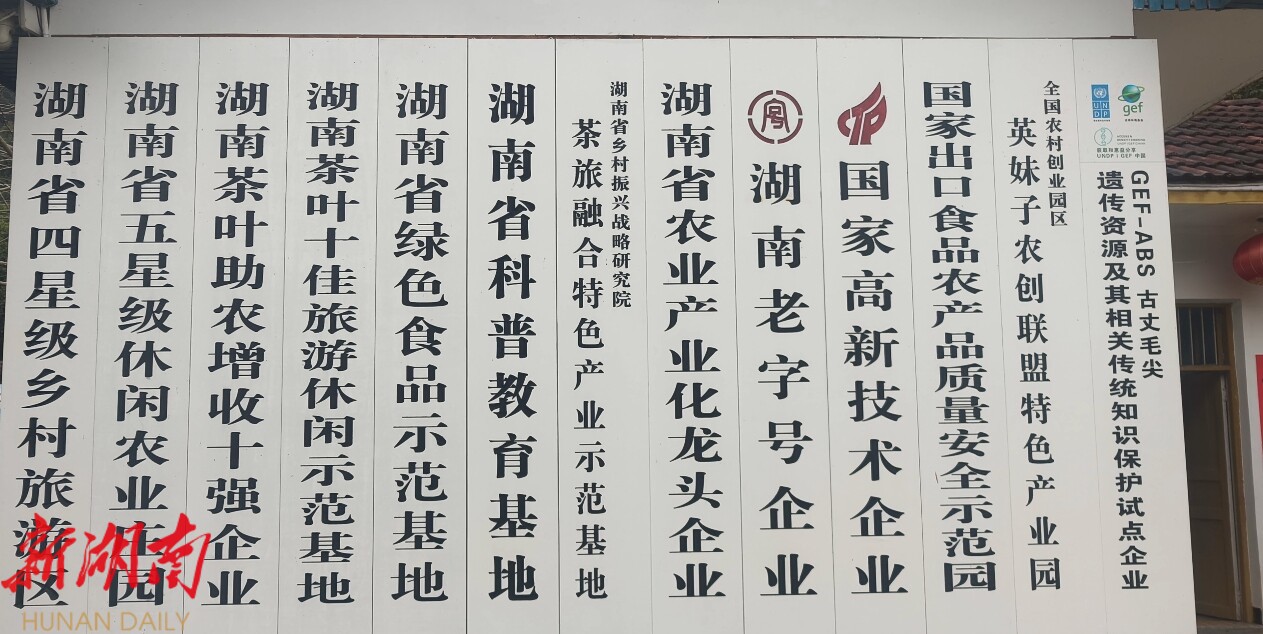 湖南省四星级乡村旅游区
湖南省五星级休闲农业庄园
湖南茶叶助农增收十强企业
湖南茶叶十佳旅游休闲示范基地
湖南省绿色食品示范基地
湖南省科普教育基地
湖南省乡村振兴战略研究院
茶旅融合特色产业示范基地
湖南省农业产业化龙头企业
湖南老字号企业
国家高新技术企业
国家出口食品农产品质量安全示范园
全国农村创业园区
英妹子农创联盟特色产业园
UNDP
gef
获取和惠益分享
UNDP | GEF 中国
GEF-ABS 古丈毛尖
遗传资源及其相关传统知识保护试点企业
新湖南
HUNAN DAILY